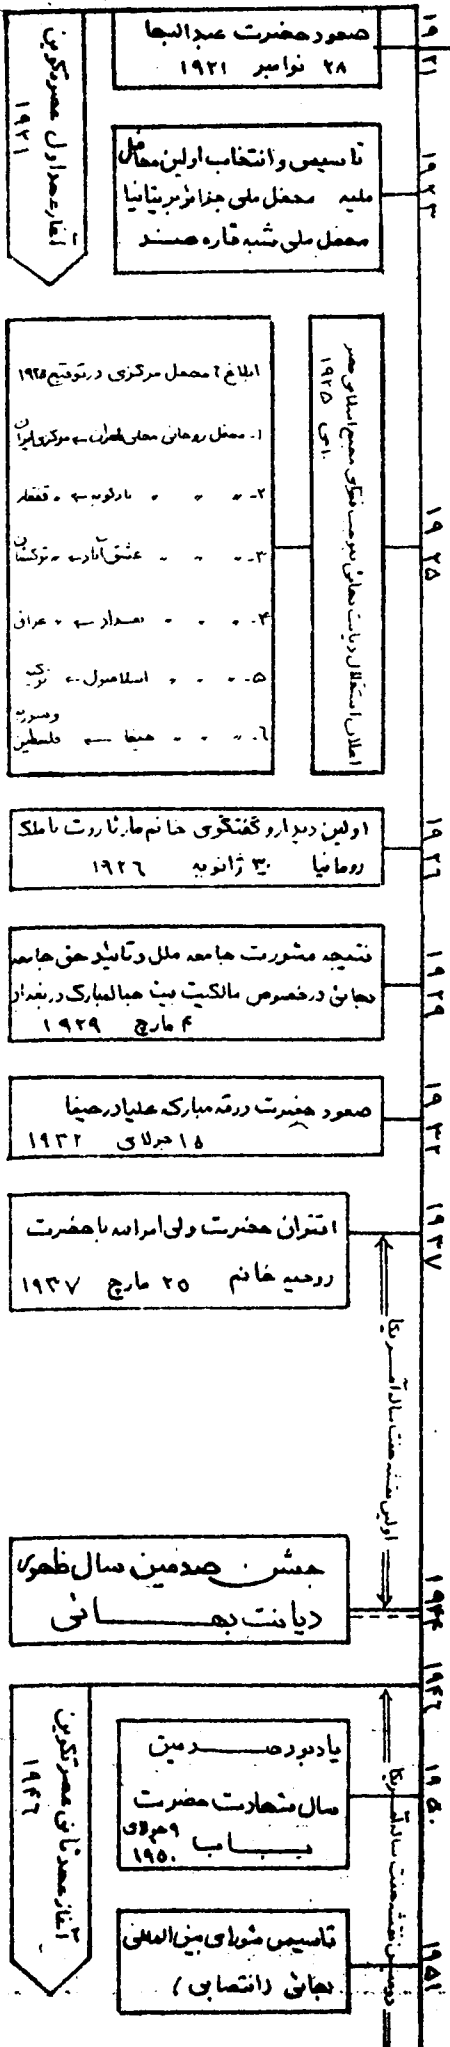 ۱۹۲۱
صعود حضرت عبدالبهآ
۲۸ نوامبر ۱۹۲۱
آغاز عهد اول عصر تکوین
۱۹۲۱
۱۹۲۳
تأسیس و انتخاب اولین محافل
ملیه محفل ملی جزائر بریتانیا
محفل ملی شبه قاره هند
۱۹۲۵
اعلان استقلال دیانت بهائی بموجب فتوای مجمع اسلامی مصر
۱۰ می ۱۹۲۵
ابلاغ ۶ محفل مرکزی در توقیع ۱۹۲۵
۱- محفل روحانی محلی طهران ← مرکزی ایران
۲- " " " بادکوبه ← " قفقاز
۳- " " " عشق آباد ← " ترکستان
۴- " " " بغداد ← " عراق
۵- " " " اسلامبول ← " ترکیه
۶- " " " حیفا ← " فلسطین وسوریه
۱۹۲۶
اولین دیدار و گفتگوی خانم مارثا روت با ملکه
رومانیا ۳۰ ژانویه ۱۹۲۶
۱۹۲۹
نتیجه مشورت جامعه ملل و تائید حق جامعه
بهائی در خصوص مالکیت بیت جمالمبارک در بغداد
۴ مارچ ۱۹۲۹
۱۹۳۲
صعود حضرت ورقه مبارکه علیا در حیفا
۱۵ جولای ۱۹۳۲
۱۹۳۷
اقتران حضرت ولی امرالله با حضرت
روحیه خانم ۲۵ مارچ ۱۹۳۷
اولین نقشه هفت ساله آمریکا
۱۹۴۴
جشن صدمین سال ظهور
دیانت بهائی
۱۹۴۶
آغاز عهد ثانی عصر تکوین
۱۹۴۶
دومین نقشه هفت ساله آمریکا
۱۹۵۰
یادبود صدمین
سال شهادت حضرت
باب ۹ جولای ۱۹۵۰
۱۹۵۱
تأسیس شورای بین المللی
بهائی (انتصابی)